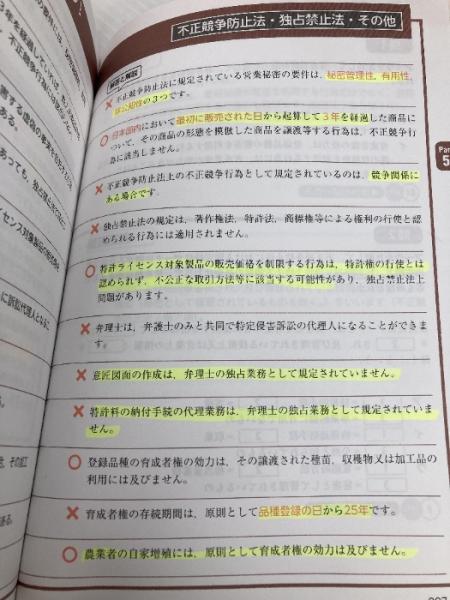 不正競争防止法・独占禁止法・その他
解答と解説
× 不正競争防止法に規定されている営業秘密の要件は、秘密管理性、有用性、
非公知性の3つです。
○ 日本国内において最初に販売された日から起算して3年を経過した商品に
ついて、その商品の形態を模倣した商品を譲渡等する行為は、不正競争行
為に該当しません。
× 不正競争防止法上の不正競争行為として規定されているのは、競争関係に
ある場合です。
× 独占禁止法の規定は、著作権法、特許法、商標権等による権利の行使と認
められる行為には適用されません。
○ 特許ライセンス対象製品の販売価格を制限する行為は、特許権の行使とは
認められず、不公正な取引方法等に該当する可能性があり、独占禁止法上
問題があります。
× 弁理士は、弁護士のみと共同で特定侵害訴訟の代理人になることができま
す。
× 意匠図面の作成は、弁理士の独占業務として規定されていません。
× 特許料の納付手続の代理業務は、弁理士の独占業務として規定されていま
せん。
○ 登録品種の育成者権の効力は、その譲渡された種苗、収穫物又は加工品の
利用には及びません。
× 育成者権の存続期間は、原則として品種登録の日から25年です。
○ 農業者の自家増殖には、原則として育成者権の効力は及びません。
Par
5